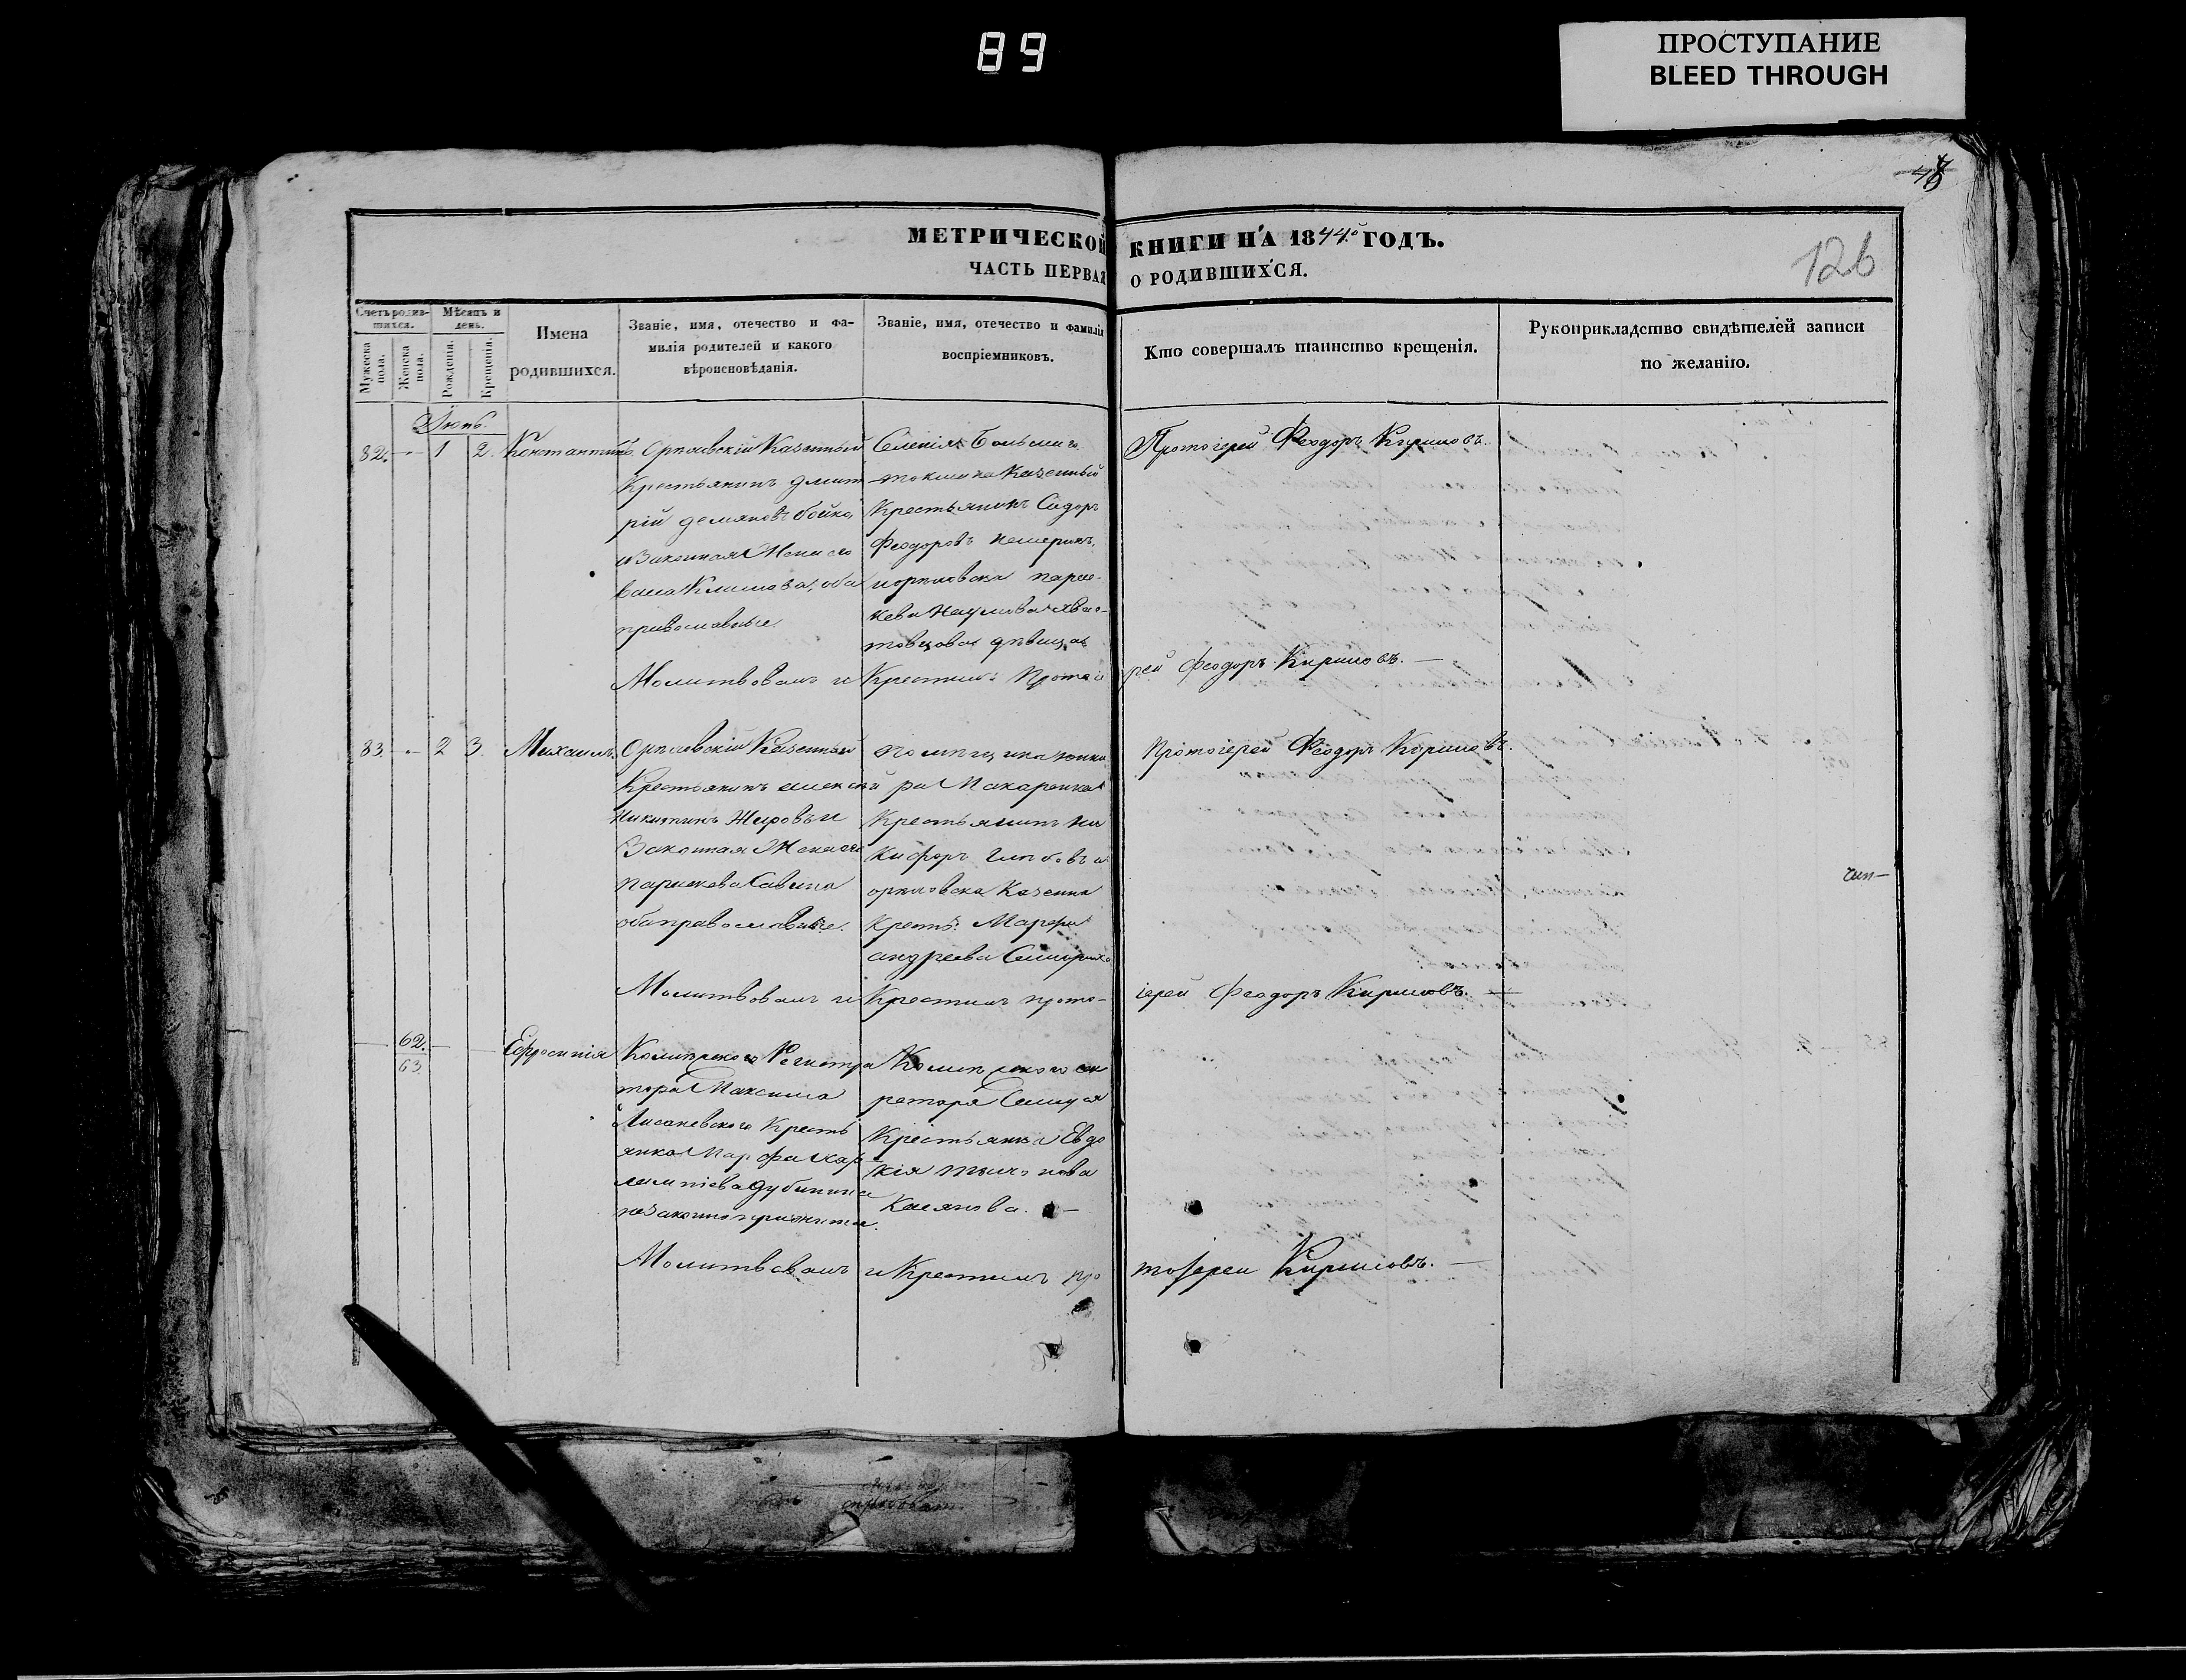 89
ПРОСТУПАНИЕ
BLEED THROUGH
126
МЕТРИЧЕСКОЙ КНИГИ НА 1844.º ГОДЪ.
ЧАСТЬ ПЕРВАЯ О РОДИВШИХСЯ.
Счетъ родившихся.
Мужеска пола.
Женска пола.
Мѣсяцъ и день.
Рожденія.
Крещенія.
Имена
родившихся.
Званіе, имя, отечество и фа-
милія родителей и какого
вѣроисновѣданія.
Званіе, имя, отечество и фамилія
воспріемниковъ.
Кто совершалъ таинство крещенія.
Рукоприкладство свидѣтелей записи
по желанію.
82. 1 2. Константинъ
Казенный
Крестьянинъ Дмит
рій Демяновъ бойко,
и Законная Жена его
Климова, оба
православные.
Казенный
Крестьянинъ Сидоръ
Феодоровъ
парас-
кева Наумова
дѣвица
Протоіерей Феодоръ Кириловъ.
Молитвовалъ и Крестилъ Протоіе
рей Феодоръ Кириловъ.
83. 2 3. Михаилъ.
Казенный
Крестьянинъ алексѣй
Никитинъ Жировъ и
Законная Жена его
параскева Савина
оба православные.
ра Макаренка
Крестьянинъ Ни
кифоръ Глѣбовъ и
Казенна
Кресть: Марфа
андреева
Протоіерей Феодоръ Кириловъ.
Молитвовалъ и Крестилъ прото-
іерей Феодоръ Кириловъ.
62.
63.
Ефросинія
Колежского Регистра
тора Максима
Лисаневского Кресть
янка Марфа Хар
лампіева Дубинина
незаконноприжита.
Колежского сек
ретаря
Крестьянка Евдо
кія
Касянова.
Молитвовалъ и Крестилъ про
тоіереи Кириловъ.